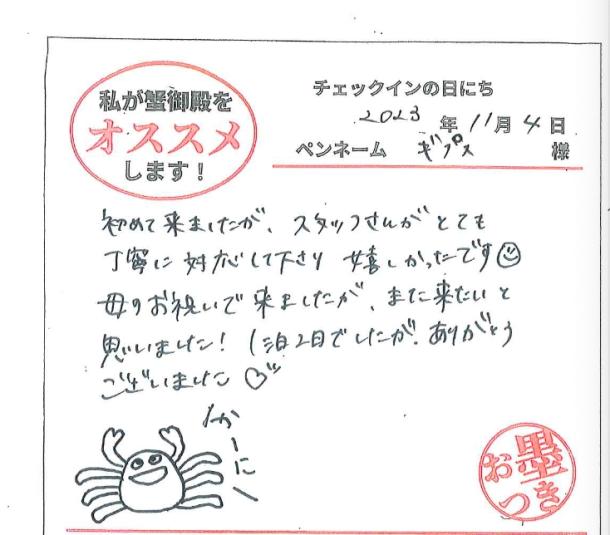 私が蟹御殿を
オススメ
します！
チェックインの日にち
2023年11月4日
ペンネーム ギプス 様
初めて来ましたが、スタッフさんがとても
丁寧に対応して下さり 嬉しかったです
母のお祝いで来ましたが、また来たいと
思いました！1泊2日でしたが、ありがとう
ございました♡
かーにー
お墨
つき